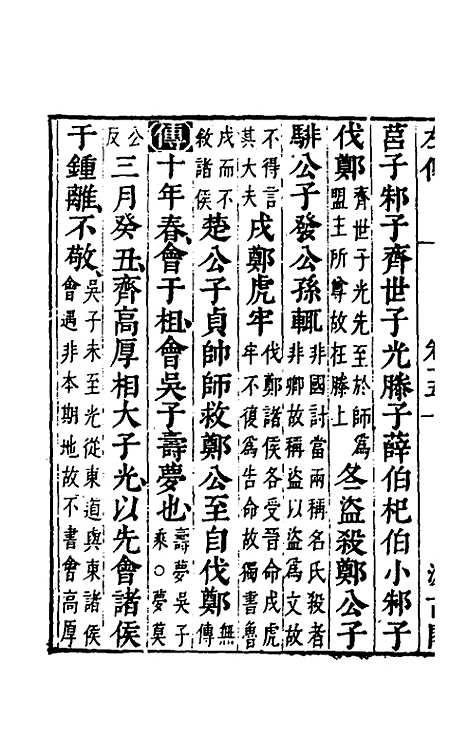 莒子邾子齊世子光滕子薛伯杞伯小邾子
伐鄭齊世子光先至於師爲盟主所尊故在滕上冬盜殺鄭公子
騑公子發公孫輒非國討當兩稱名氏殺者非卿故稱盜以盜爲文故
不得言其大夫戍鄭虎牢伐鄭諸侯各受晉命戍虎牢不復爲告命故獨書魯
戍而不敘諸侯楚公子貞帥師救鄭公至自伐鄭無傳
傳十年春、會于柤、會吳子壽夢也、壽夢吳子乘○夢莫
公反三月癸丑、齊高厚相大子光、以先會諸侯
于鍾離、不敬、吳子未至光從東道與東諸侯會遇非本期地故不書會高厚